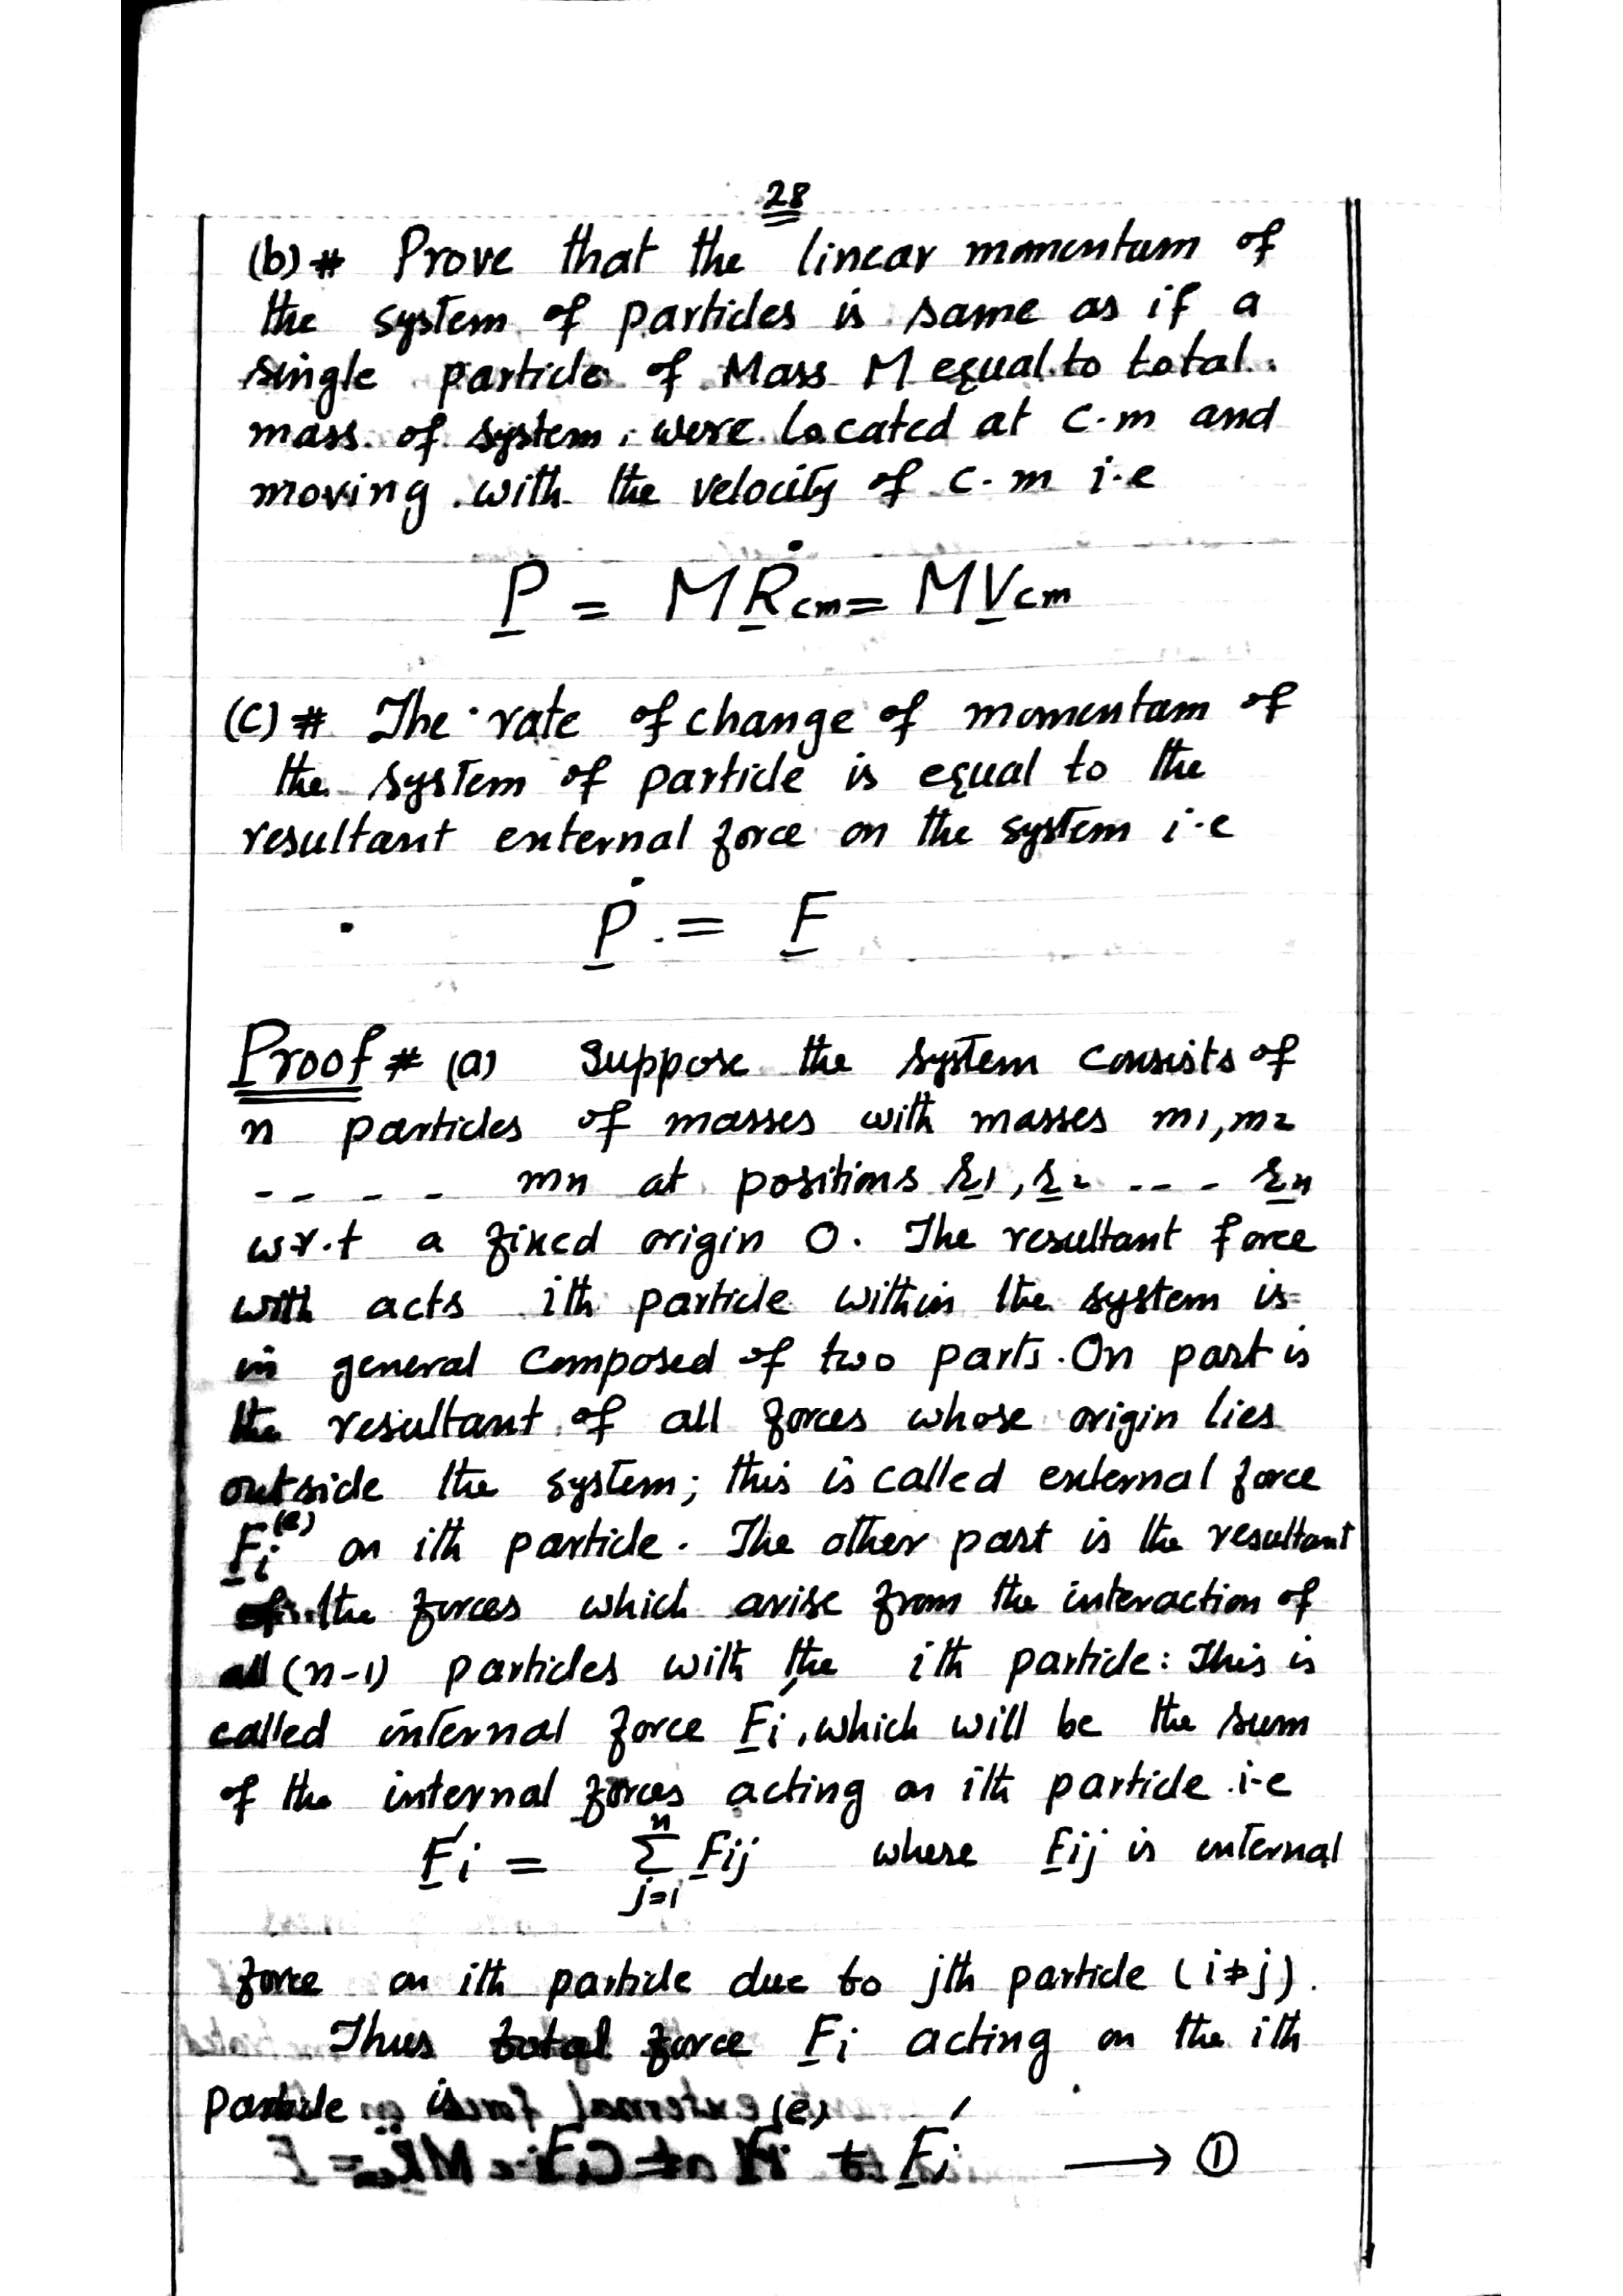 28
(b) # Prove that the linear momentum of
the system of particles is same as if a
single particle of Mass M equal to total
mass of system, were located at C.m and
moving with the velocity of C.m i.e
P = MṘcm = MVcm
(C) # The rate of change of momentam of
the system of particle is equal to the
resultant external force on the system i.e
Ṗ = F
Proof # (a) Suppose the system consists of
n particles of masses with masses m1, m2
- - - - mn at positions r1, r2 - - - rn
w.r.t a fixed origin O. The resultant force
with acts ith particle within the system is
in general composed of two parts. On part is
the resultant of all forces whose origin lies
outside the system; this is called external force
Fi(e) on ith particle. The other part is the resultant
of the forces which arise from the interaction of
all (n-1) particles with the ith particle: This is
called internal force F'i, which will be the sum
of the internal forces acting on ith particle i-e
F'i = n Σ j=1 Fij where Fij is internal
force on ith particle due to jth particle (i≠j).
Thus total force Fi acting on the ith
Particle is
(e) + F'i → ①